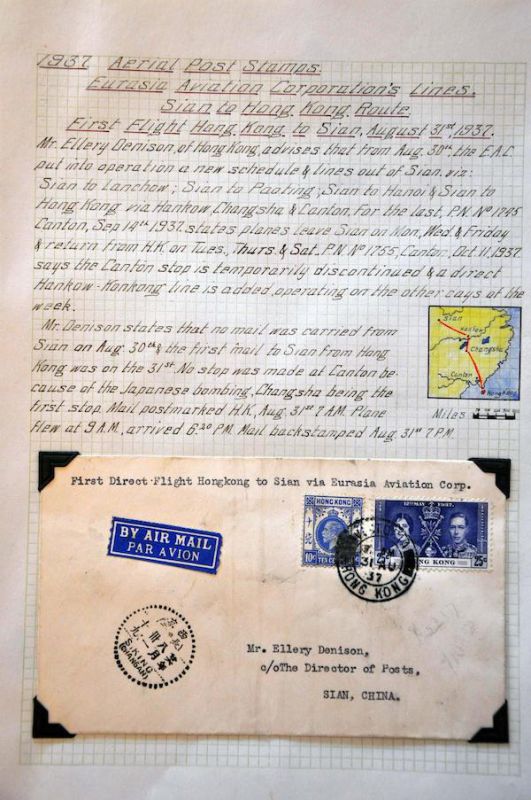 1937 Aerial Post Stamps.
Eurasia Aviation Corporation's Lines.
Sian to Hong Kong Route
First Flight Hong Kong to Sian, August 31st, 1937.
Mr. Ellery Denison, of Hong Kong, advises that from Aug. 30th, the E.A.C.
put into operation a new schedule & lines out of Sian, via:
Sian to Lanchow; Sian to Paoting; Sian to Hanoi & Sian to
Hong Kong via Hankow, Changsha & Canton. For the last, P.N. No 1745
Canton, Sep 14th 1937, states planes leave Sian on Mon., Wed. & Friday
& return from H.K. on Tues., Thurs & Sat. P.N. No 1755, Canton, Oct. 11, 1937
says the Canton stop is temporarily discontinued & a direct
Hankow-Honkong line is added, operating on the other days of the
week.
Mr. Denison states that no mail was carried from
Sian on Aug 30th & the first mail to Sian from Hong
Kong was on the 31st No stop was made at Canton be-
cause of the Japanese bombing, Changsha being the
first stop. Mail postmarked H.K., Aug. 31st 7 A.M. Plane
flew at 9 A.M., arrived 6.20 P.M. Mail backstamped Aug. 31st 7 P.M.
Sian
Hankow
Changsha
Canton
Hong Kong
Miles
First Direct Flight Hongkong to Sian via Eurasia Aviation Corp.
BY AIR MAIL
PAR AVION
HONG KONG
10c TEN CENTS
12TH MAY 1937
HONG KONG
25c
31 AU
37
HONG KONG
西
八
卅
十
月
一
九
SIKING
(CHANGAN)
Mr. Ellery Denison,
c/oThe Director of Posts,
SIAN, CHINA.